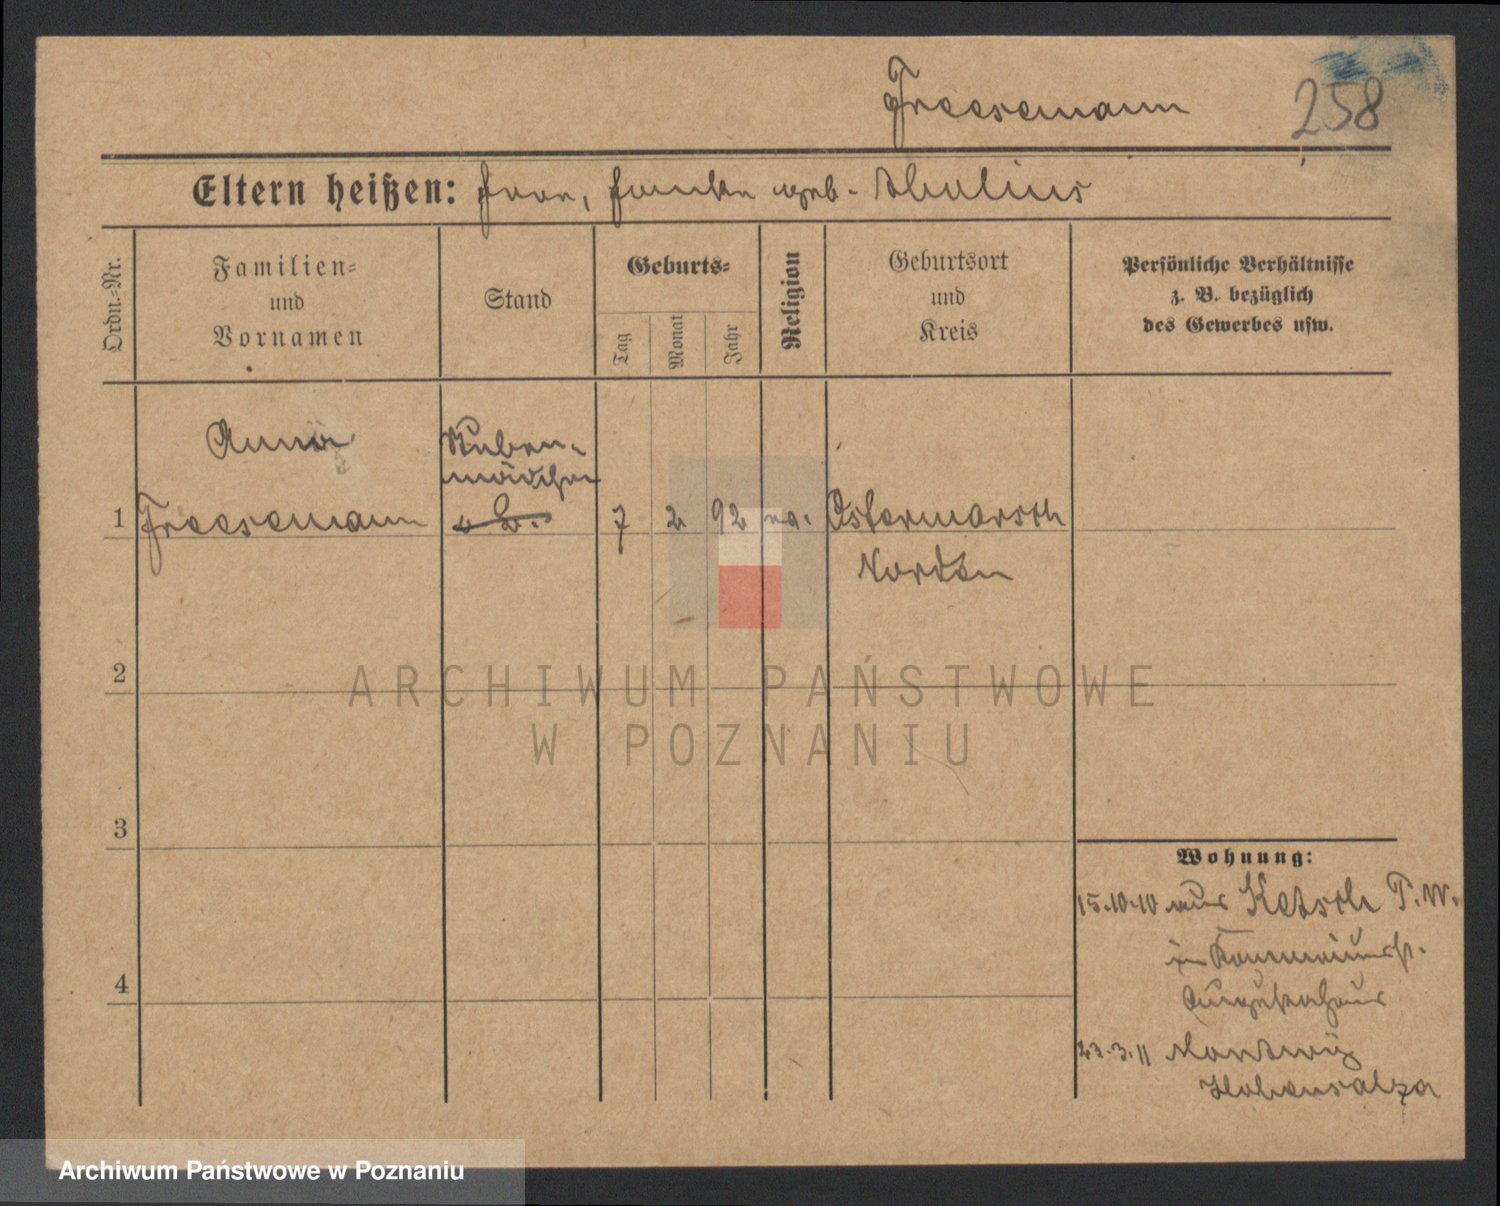 Freesemann 258
Eltern heißen: geb.
Ordn.-Nr.
Familien-
und
Vornamen
Stand
Geburts-
Tag
Monat
Jahr
Religion
Geburtsort
und
Kreis
Persönliche Verhältnisse
z. B. bezüglich
des Gewerbes usw.
Anna Stuben-
mädchen
1 Freesemann 7 2 92 Ostermarsch
Norden
2
ARCHIWUM PAŃSTWOWE
W POZNANIU
3
Wohnung:
15.10.10 aus Ketsch P. W.
4
23.3.11 Montwy
Hohensalza
Archiwum Państwowe w Poznaniu